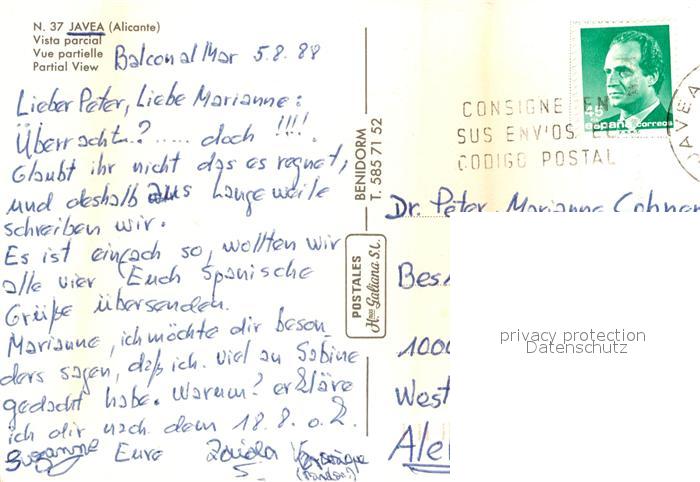 N. 37 JAVEA (Alicante)
Vista parcial
Vue partielle
Partial View
Balcon al Mar 5.8.88
Lieber Peter, Liebe Marianne:
Überracht..? ..... doch !!!!
Glaubt ihr nicht das es regnet,
und deshalb aus Langeweile
schreiben wir.
Es ist einfach so, wollten wir
alle vier Euch Spanische
Grüße übersenden.
Marianne, ich möchte dir beson
ders sagen, daß ich viel an Sabine
gedacht habe. Warum? erkläre
ich dir nach dem 18.8. o.k.
Suzanne Eure Zaida Veronique
POSTALES
Hnos Galiana S.L.
BENIDORM
T. 585 71 52
45
España correos
CONSIGNE EN
SUS ENVIOS
CODIGO POSTAL
JAVEA
Dr. Peter, Marianne Cohner
Bes
1000
West
Ale
privacy protection
Datenschutz